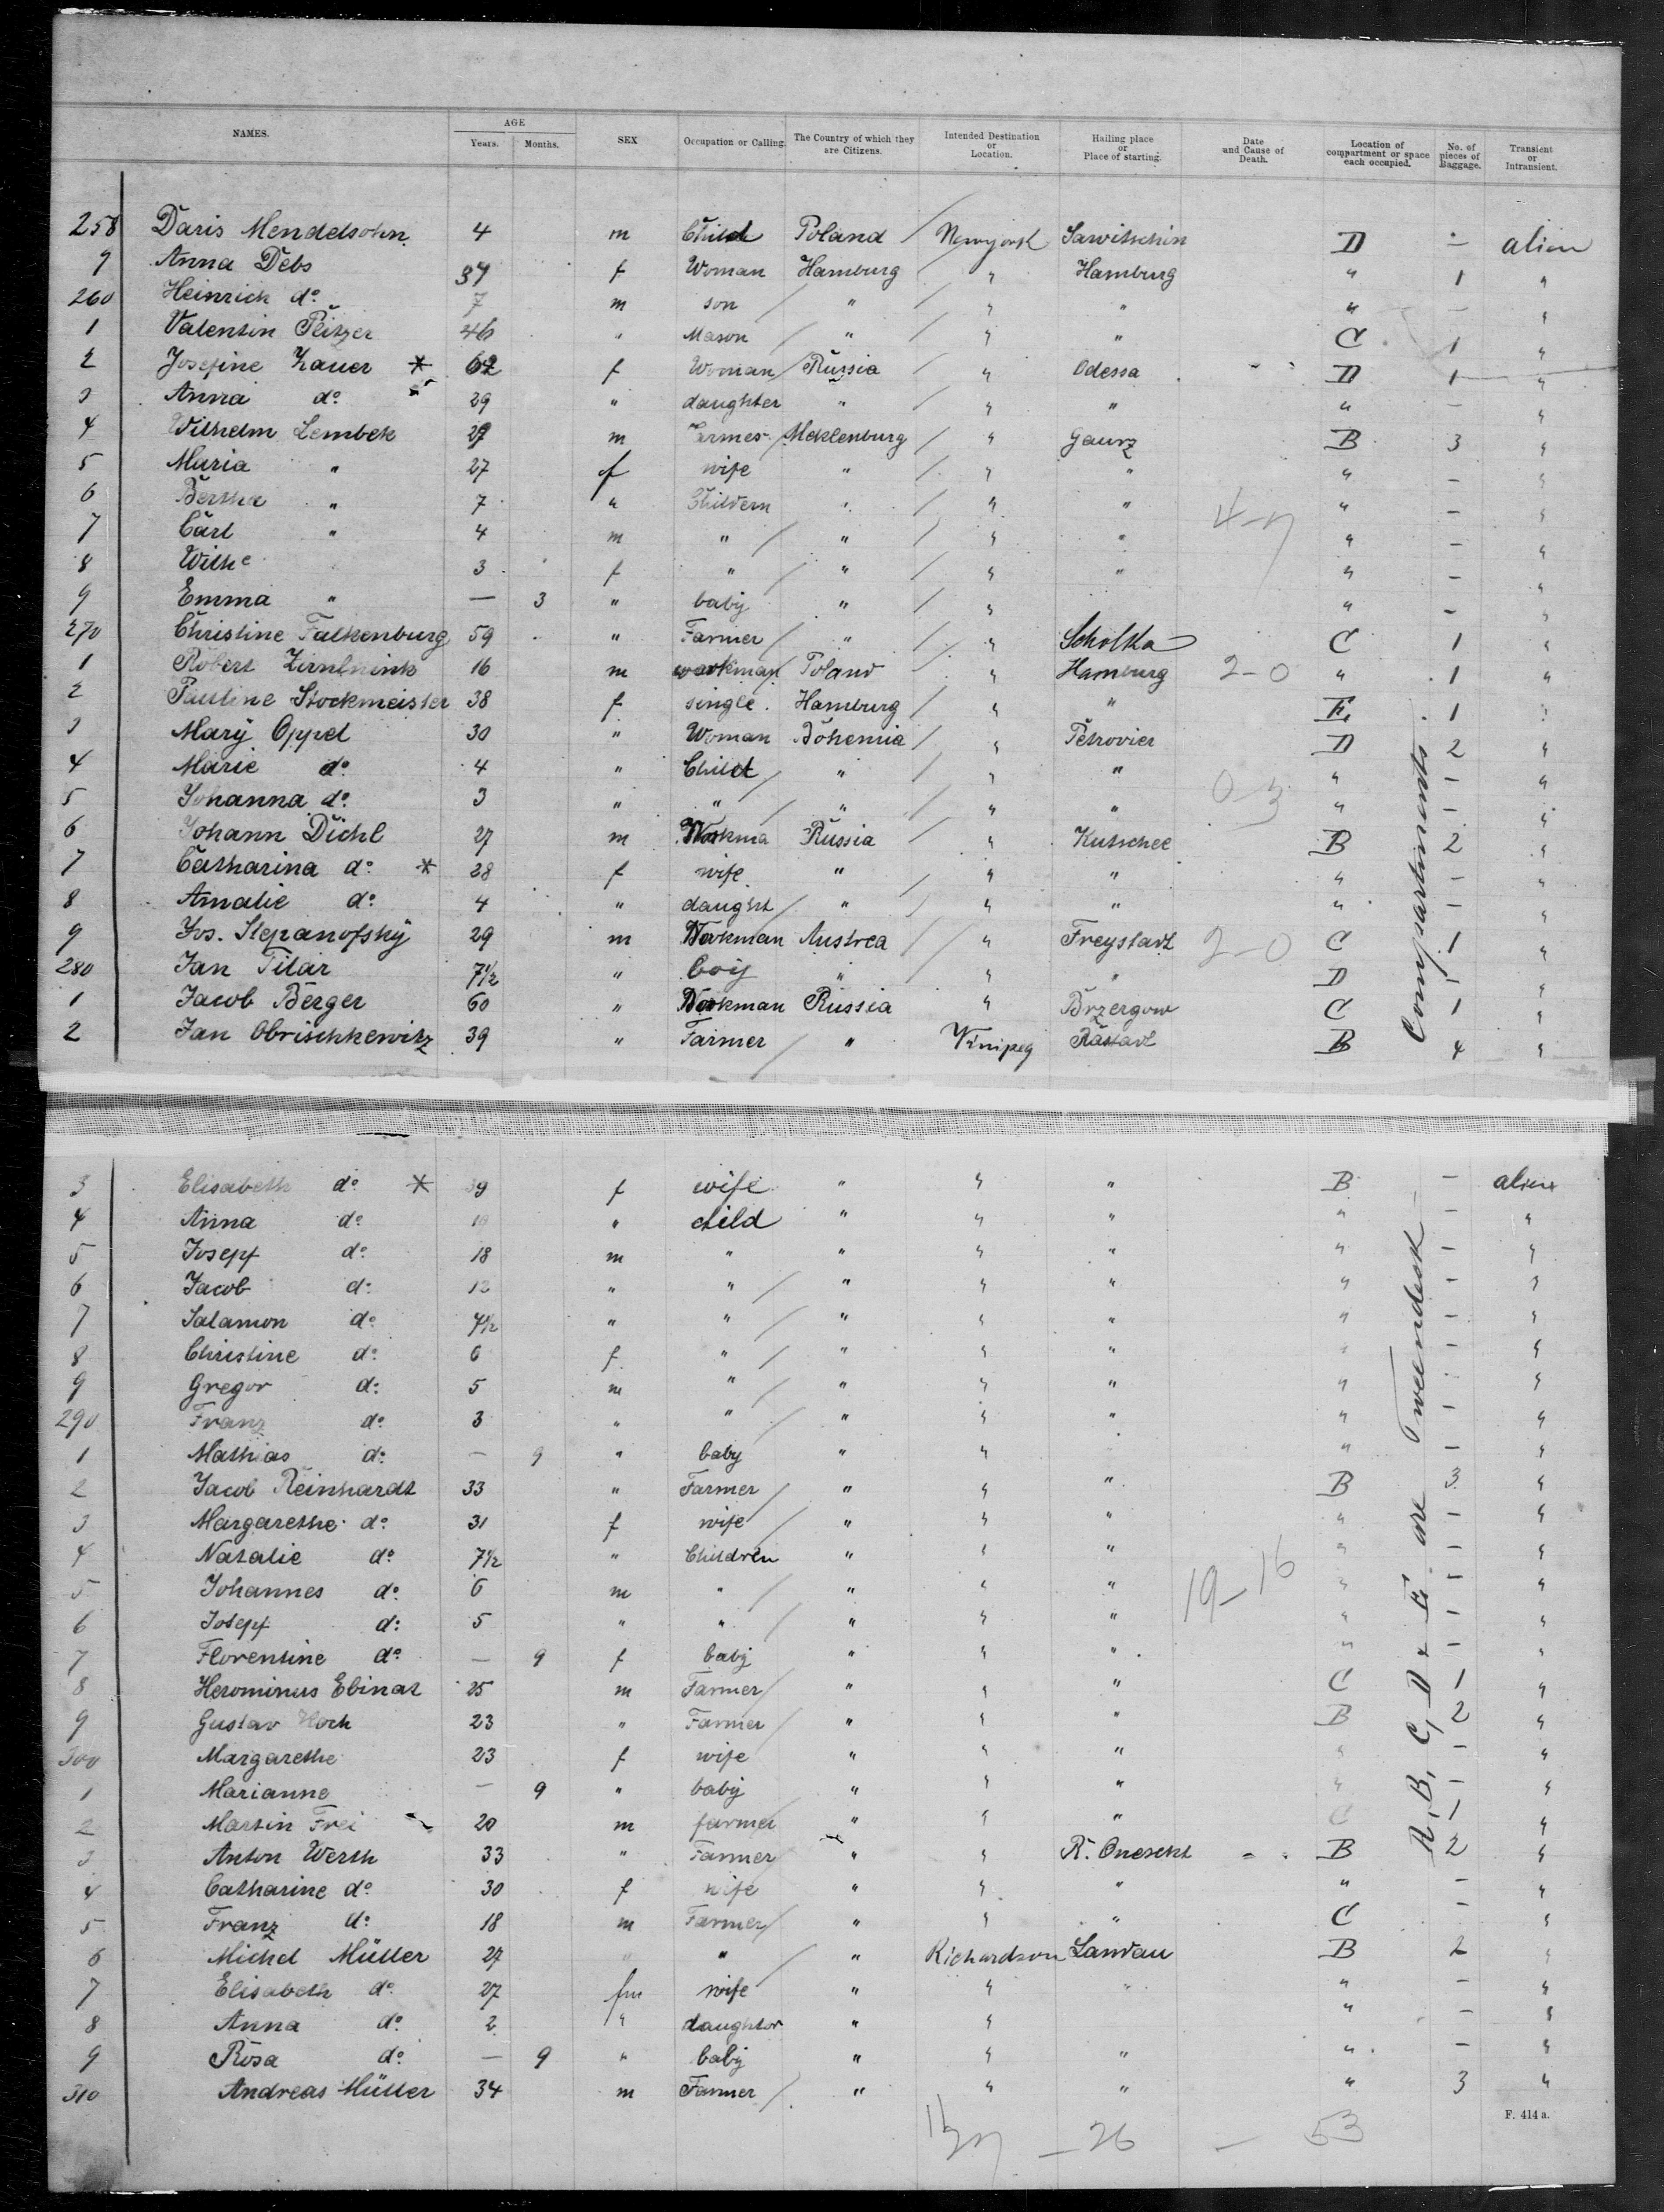 NAMES. AGE Years. Months. SEX Occupation or Calling. The Country of which they are Citizens. Intended Destination or Location. Hailing place or Place of starting. Date and Cause of Death. Location of compartment or space each occupied. No. of pieces of Baggage. Transient or Intransient.
258 Daris Mendelsohn 4 m Child Poland / Newyork Sawitschin D - alien
9 Anna Debs 37 f Woman Hamburg / " Hamburg " 1 "
260 Heinrich do 7 m son / " / " " " - "
1 Valentin Peitzer 46 " Mason " / " " C 1 "
2 Josefine Zauer * 62 f Woman / Russia " Odessa D 1 "
3 Anna do 29 " daughter " / " " " - "
4 Wilhelm Lembek 29 m Farmer Meklenburg / " Gaurz B 3 "
5 Maria " 27 f wife " / " " " - "
6 Bertha " 7 " Childern " / " " " - "
7 Carl " 4 m " / " / " " " - "
8 3 f " / " / " " " - "
9 Emma " — 3 " baby " / " " - "
270 Christine Falkenburg 59 " Farmer / " / " Scholtka C 1 "
1 Robert 16 m workman Poland " Hamburg 2-0 " 1 "
2 Pauline Stockmeister 38 f single Hamburg / " " E 1 "
3 Mary Oppel 30 " Woman Bohemia / " Petrovier D 2 "
4 Marie do 4 " Child / " " " " - "
5 Johanna do 3 " " / " / " " 0-3 " - "
6 Johann Dichl 27 m Workma Russia / " Kutschee B 2 "
7 Catharina do * 28 f wife " / " " " - "
8 Amalie do 4 " daught / " / " " " - "
9 Jos. Stepanofsky 29 m Workman Austrea / " Freystadt 2-0 C 1 "
280 Jan Pilar 7½ " boy " / " " D 1 "
1 Jacob Berger 60 " Workman Russia " Brzergow C 1 "
2 Jan Obrischkewitz 39 " Farmer / " Winipeg Rastadt B 4 "
3 Elisabeth do * 39 f wife " " " B - alien
4 Anna do " child " " " " - "
5 Josepf do 18 m " " " " " - "
6 Jacob do 12 " " / " " " " - "
7 Salamon do 7½ " " / " " " " - "
8 Christine do 6 f " / " " " " - "
9 Gregor do 5 m " / " " " " "
290 Franz do 3 " " / " " " " - "
1 Mathias do — 9 " baby " " " - "
2 Jacob Reinhardt 33 " Farmer / " " " B 3 "
3 Margarethe do 31 f wife / " " " " - "
4 Natalie do 7½ " Children " " " " - "
5 Johannes do 6 m " / " " " 19-16 " - "
6 Josepf do 5 " " / " " " " - "
7 Florentine do — 9 f baby " " " " - "
8 Herominus Ebinat 25 m Farmer / " " " C 1 "
9 Gustav Hoch 23 " Farmer / " " " B 2 "
300 Margarethe 23 f wife " " " " - "
1 Marianne — 9 " baby " " " " - "
2 Martin Frei 20 m farmer " " " C 1 "
3 Anton Werth 33 " Farmer / " " B 2 "
4 Catharine do 30 f wife " " " " - "
5 Franz do 18 m Farmer / " " " C - "
6 Michel Müller 27 " " / " Richardson Landau B 2 "
7 Elisabeth do 27 fm wife " " " " - "
8 Anna do 2 " daughter " " " - "
9 Rosa do — 9 " baby " " " " - "
310 Andreas Müller 34 m Farmer / " " " " 3 "
A, B, C, D & E are Tweendeck Compartments
— 26 — 53
F. 414 a.